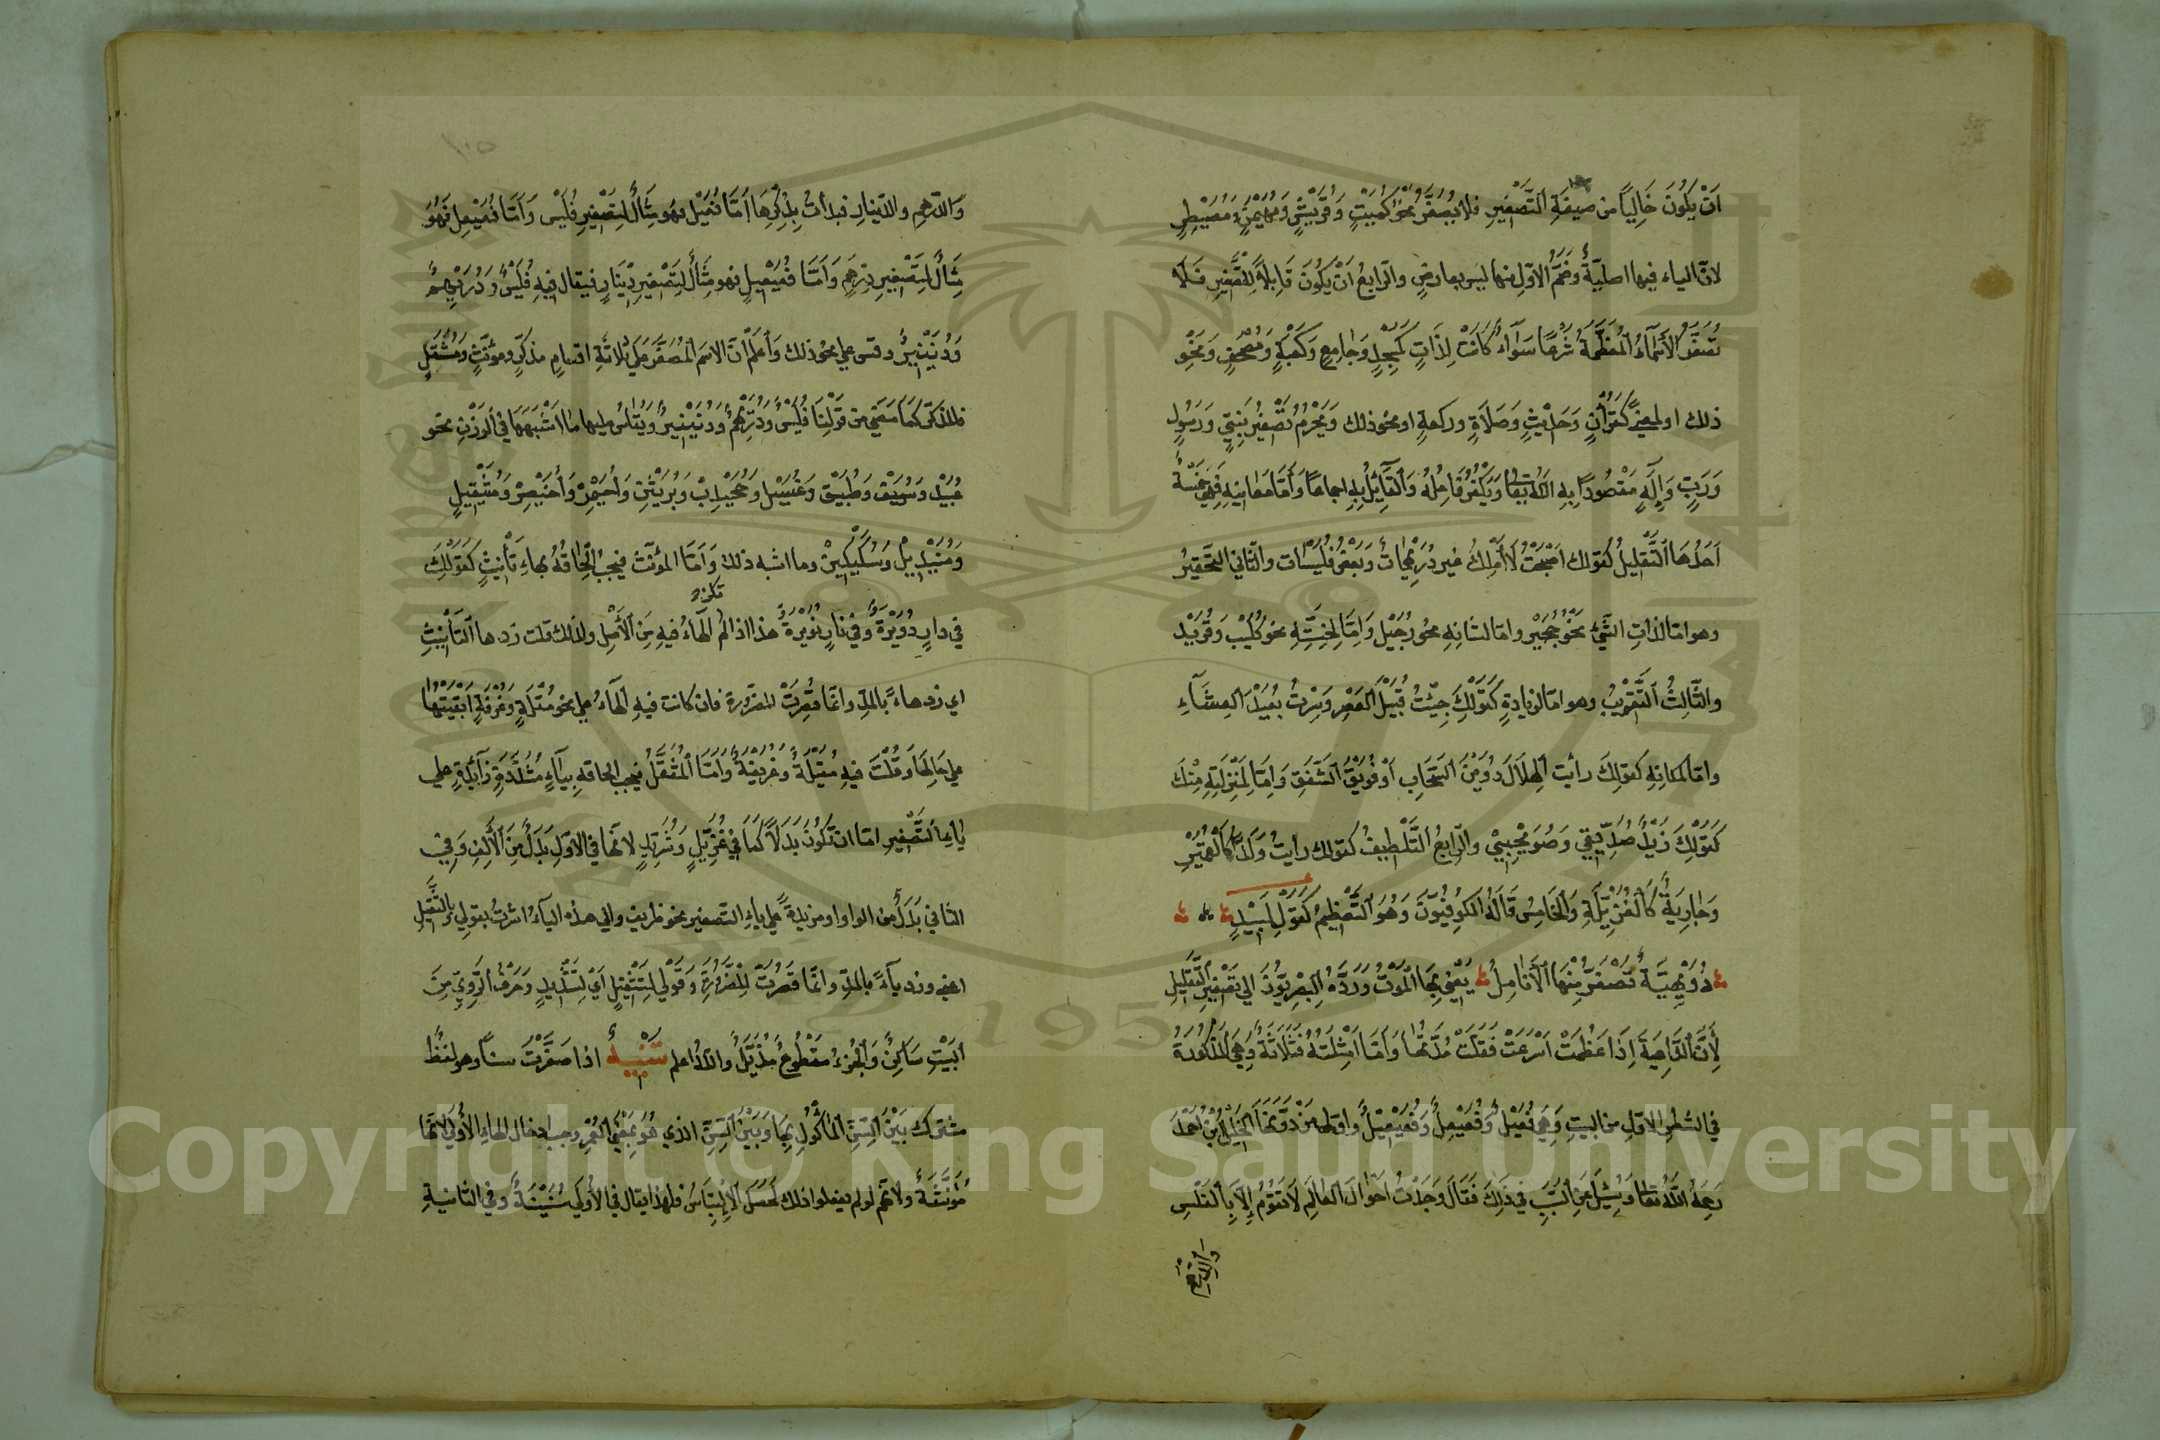 اَنْ يَكُونَ خَالِياً من صيغَةِ التَّصْغِيرِ فلا يُصَغَّرُ نحوُ كُمَيْتٍ وَقُرَيْشٍ وَمُهَيْمِنٍ وَمُسَيْطِرٍ
لانّ الياء فيها اصليّةٌ وضَمُّ الاوّلِ منها ليس بعارضٍ والرّابعُ اَنْ يَكُونَ قَابِلاً لِلتَّصْغِيرِ فَلَا
تُصَغَّرُ الأَسْمَآءُ الْمُعَظَّمَةُ شَرْعًا سَوَآءٌ كَانَتْ لِذَاتٍ كَمَسْجِدٍ وَجَامِعٍ وَكَعْبَةٍ وَمُصْحَفٍ وَنَحْوِ
ذلك او لمعنىً كقُرْآنٍ وَحَدِيثٍ وَصَلَاةٍ وركعةٍ او نحو ذلك وَيَحْرُمُ تَصْغِيرُ نَبِيٍّ وَرَسُولٍ
وَرَبٍّ وَإِلَهٍ مَقْصُودًا بِهِ اللهُ تعالى وَيَكْفُرُ فَاعِلُهُ وَالْقَآئِلُ بِهِ اجماعًا وَأَمَّا مَعَانِيهِ فَهِيَ خَمْسَةٌ
اَحَدُهَا التَّقْلِيلُ كقولك اَصْبَحْتُ لَا أَمْلِكُ غير دُرَيْهِمَاتٍ وَبَعْضَ فُلَيْسَاتٍ والثّاني التَّحْقِيرُ
وهو امّا لذاتِ الشَّيْءِ نَحْوُ حُجَيْرٍ وامّا لشانِهِ نحوُ رُجَيْلٍ وَاِمَّا لِخِسَّتِهِ نحو كُلَيْبٍ وَقُرَيْدٍ
والثَّالِثُ التَّقْرِيْبُ وهو امّا لزيادةٍ كَقَوْلِكَ جِئْتُ قُبَيْلَ الْعَصْرِ وَسِرْتُ بُعَيْدَ العِشَآءِ
وامّا لمكانِهِ كقولِكَ رأيت الْهِلَالَ دُوَيْنَ السَّحَابِ اَوْ فُوَيْقَ الشَّفَقِ وَاِمَّا لِمَنْزِلَتِهِ مِنْكَ
كَقَوْلِكَ زَيْدٌ صُدَيِّقِي وَصُوَيْحِبِيْ والرّابِعُ التَّلْطِيفُ كقولك رأيتُ وَلَدًا كَالْقُمَيْرِ
وَجَارِيَةً كَالْغُزَيِّلَةِ وَالْخَامِسُ قَالَهُ الْكُوفِيُّونَ وَهُوَ التَّعْظِيمُ كَقَوْلِ لَبِيْدٍ
دُوَيْهِيَّةٌ تَصْفَرُّ مِنْهَا الْأَنَامِلُ يَعْنِي بِهَا الْمَوْتُ وَرَدَّهُ الْبَصْرِيُّونَ الي تَصْغِيرِ التَّقْلِيلِ
لِأَنَّ الدَّاهِيَةَ اِذَا عَظُمَتْ اَسْرَعَتْ فَقَلَّتْ مُدَّتُهَا وَاَمَّا اَمْثِلَتُهُ فَثَلَاثَةٌ وَهِيَ الْمَذْكُورَةُ
في الشّطر الاوّل من البيتِ وَهِيَ فُعَيْلٌ وَفُعَيْعِلٌ وَفُعَيْعِيْلٌ واوّلُ مَنْ دَوَّنَهَا الْخَلِيْلُ بْنُ اَحْمَدَ
رَحِمَهُ اللهُ تعالى وَسُئِلَ عَنِ السَّبَبِ في ذَلِكَ فَقَالَ وَجَدْتُ اَحْوَالَ الْعَالَمِ لَا تَقُوْمُ إِلَّا بِالْفَلْسِ
وَالدِّرْهَمِ
وَالدّرهمِ والدّينارِ فبدأتُ بِذِكْرِهَا اَمَّا فُعَيْل فهو مِثَالٌ لِتَصْغِيرِ فَلْسٍ وَاَمَّا فُعَيْعِل فَهُوَ
مِثَالٌ لِتَصْغِيرِ دِرْهَمٍ وَاَمَّا فُعَيْعِيلٍ فهو مِثَالٌ لِتَصْغِيرِ دِيْنَارٍ فيقال فيه فُلَيْسٌ وَدُرَيْهِمٌ
وَدُنَيْنِيرٌ وقس علي نحو ذلك وَاَعْلَمْ اَنَّ الاسمَ الْمُصَغَّرَ عَلَي ثَلاثَةِ اقسامٍ مذكّرٍ ومؤنّثٍ وَمُثَقَّلٍ
فالمذكّر كَمَا مَضَي من قَوْلِنَا فُلَيْسٌ وَدُرَيْهِمٌ وَدُنَيْنِيرٌ وَيُقَاسُ عليها ما اَشْبَهَهَا فِي الْوَزْنِ نحو
عُبَيْدٍ وَسُوَيْقٍ وَطُبَيْقٍ وَغُسَيْلٍ وَجُحَيْدِبٍ وَبُرَيْثِنٍ وَاُحَيْمِرٍ وَأُخَيْصِرٍ وَمُثَيْقِيلٍ
وَمُنَيْدِيلٍ وَسُكَيْكِينٍ وما اشبه ذلك وَاَمَّا المؤنّث فيجبُ اِلْحَاقُهُ بهاءِ تَأْنِيثٍ كَقَوْلِكَ
في دارٍ دُوَيْرَةٌ وَفِي نَارٍ نُوَيْرَةٌ هذا اذا لم تكن الْهَاءُ فيهِ مِنَ الْأَصْلِ ولذلك قلت زد ها التأنيثِ
اي زد هاءً بالمدِّ وانّما قُصِرَتْ للضّرورة فان كانت فيهِ الْهَآءُ علي نحو مُقْلَةٍ وَغُرْفَةٍ اَبْقَيْتَهَا
علي حَالِهَا وَقُلْتَ فيهِ مُقَيْلَةٌ وَغُرَيْفَةٌ وَاَمَّا الْمُثَقَّلُ فيجب الحاقه بِيَاءٍ مُشَدَّدَةٍ زَآئِدَةٍ علي
يَاءِ التَّصْغِيرِ امّا ان تَكُوْنَ بَدَلاً كَمَا في غُزَيِّلٍ وَشُرَيِّدٍ لانّها في الاوّلِ بَدَلٌ مِنَ الْأَلِفِ وَفِي
الثّاني بَدَلٌ من الواو او مزيدة علي ياءِ التصغير نحو ظريف والي هذه الياءِ اشرتُ بقولي بِالتَّثْقِيلِ
اعني وزد ياءً بالمدِّ وانّما قصرت لِلْضَّرُورَةِ وَقَوْلِي لِتَثْقِيلٍ اَيْ لِتَشْدِيدٍ وَحَرْفُ الرَّوِيِّ مِنَ
الْبَيْتِ سَاكِنٌ وَالْجُزْءُ مَقْطُوعٌ مُذَيَّلٌ واللهُ اعلم تَنْبِيهٌ اذا صَغَّرْتَ سنًّا وهو لفظٌ
مشترك بَيْنَ السِّنِّ الْمَأْكُولِ بِهَا وَبَيْنَ السِّنِّ الذي هُوَ بِمَعْنَى الْعُمْرِ وجب ادخال الهاءِ الْأُولَي لانّها
مُؤَنَّثَةٌ ولانّهم لو لم يفعلوا ذلك لَحَصَلَ الْاِلْتِبَاسُ فلهذا يقال في الأُولَي سُنَيْنَةٌ وفي الثّانيةِ
Copyright © King Saud University
1957